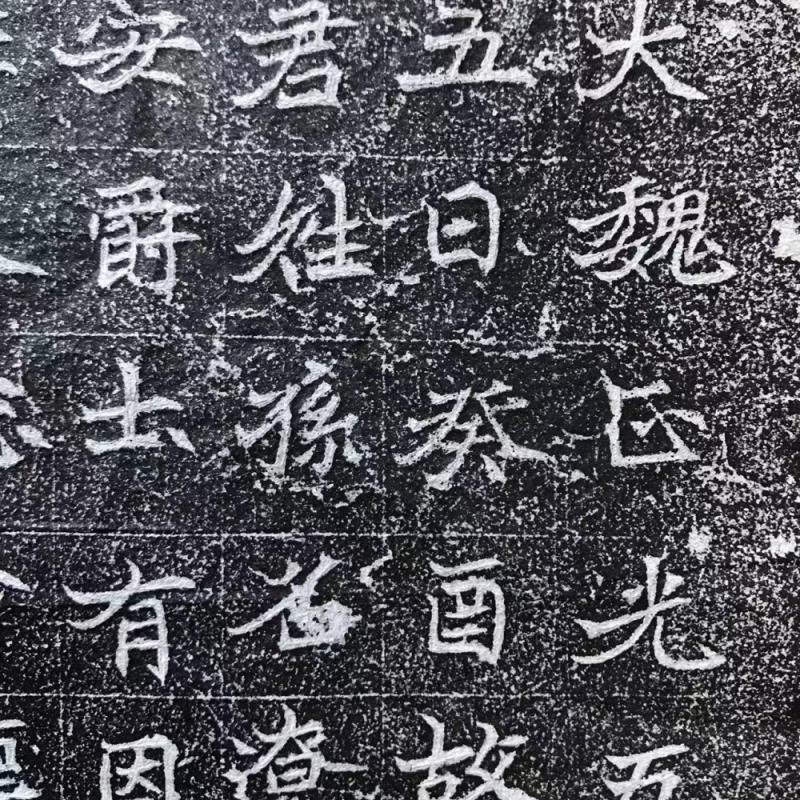 大魏正光五
五日癸酉故
君姓孫名遼
安爵土有因